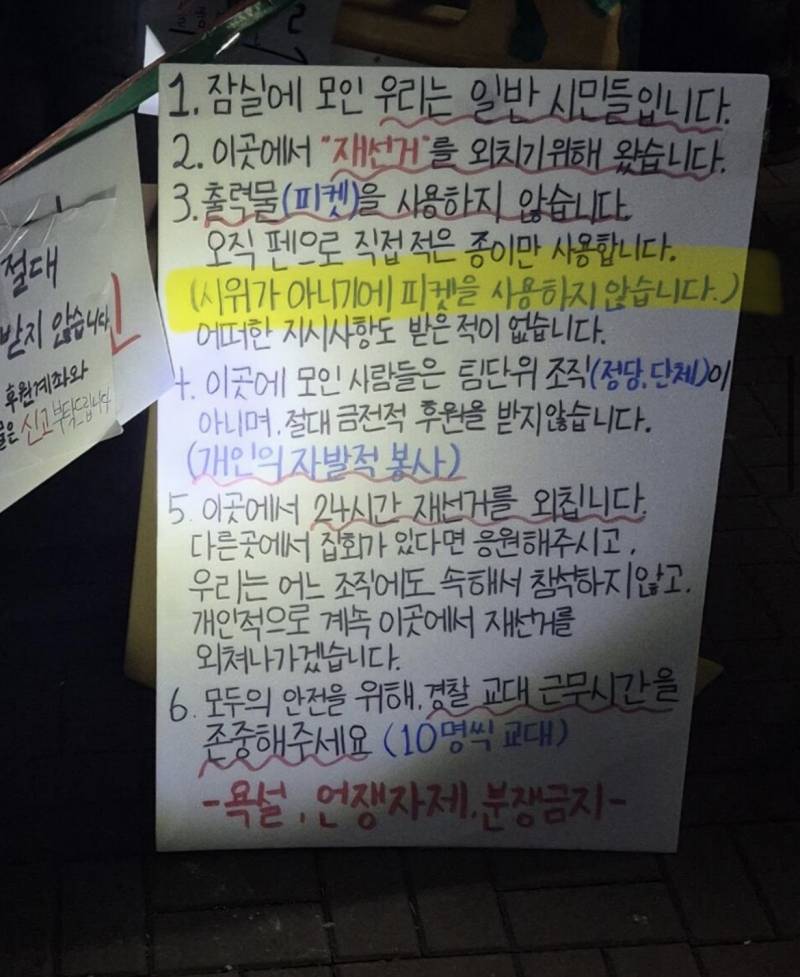 1. 잠실에 모인 우리는 일반 시민들입니다.
2. 이곳에서 "재선거"를 외치기위해 왔습니다.
3. 출력물(피켓)을 사용하지 않습니다.
오직 펜으로 직접 적은 종이만 사용합니다.
(시위가 아니기에 피켓을 사용하지 않습니다.)
어떠한 지시사항도 받은적이 없습니다.
4. 이곳에 모인 사람들은 팀단위 조직(정당,단체)이
아니며, 절대 금전적 후원을 받지않습니다.
(개인의 자발적 봉사)
5. 이곳에서 24시간 재선거를 외칩니다.
다른곳에서 집회가 있다면 응원해주시고,
우리는 어느 조직에도 속해서 참석하지않고.
개인적으로 계속 이곳에서 재선거를
외쳐나가겠습니다.
6. 모두의 안전을 위해, 경찰 교대 근무시간을
존중해주세요 (10명씩 교대)
-욕설, 언쟁자제, 분쟁금지-
절대
받지 않습니다
후원계좌와
신고 부탁드립니다